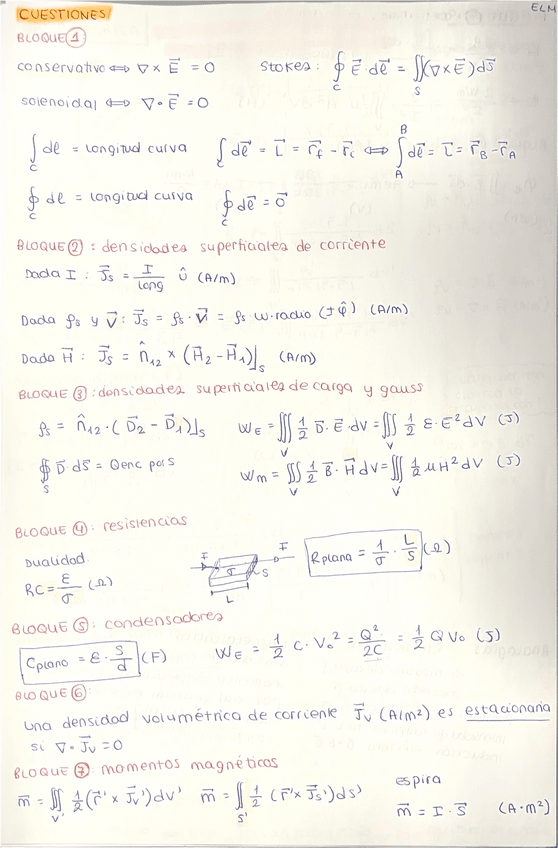 CUESTIONES
ELM
BLOQUE ①
conservativo ⟺ ∇ × E⃗ = 0    Stokes: ∮_C E⃗ · dℓ⃗ = ∬_S (∇×E⃗) ds⃗
solenoidal ⟺ ∇ · E⃗ = 0
∫_C dℓ = longitud curva    ∫_C dℓ⃗ = L⃗ = r⃗_f - r⃗_i ⟺ ∫_A^B dℓ⃗ = L⃗ = r⃗_B - r⃗_A
∮_C dℓ = longitud curva    ∮_C dℓ⃗ = 0
BLOQUE ②: densidades superficiales de corriente
Dada I : J⃗_S = I/long û (A/m)
Dada ρ_S y V⃗ : J⃗_S = ρ_S · V⃗ = ρ_S · ω · radio (± φ̂) (A/m)
Dada H⃗ : J⃗_S = n̂_12 × (H⃗_2 - H⃗_1)⌋_S (A/m)
BLOQUE ③: densidades superficiales de carga y gauss
ρ_S = n̂_12 · (D⃗_2 - D⃗_1)⌋_S    W_E = ∭_V 1/2 D⃗ · E⃗ · dV = ∭_V 1/2 ε · E² dV (J)
∯_S D⃗ · ds⃗ = Qenc por S    W_m = ∭_V 1/2 B⃗ · H⃗ dV = ∭_V 1/2 μH² dV (J)
BLOQUE ④: resistencias
Dualidad.
RC = ε/σ (Ω)    I σ S I L    R_plana = 1/σ · L/S (Ω)
BLOQUE ⑤: condensadores
C_plano = ε · S/d (F)    W_E = 1/2 C · V_0² = Q²/2C = 1/2 Q V_0 (J)
BLOQUE ⑥:
una densidad volumétrica de corriente J⃗_V (A/m²) es estacionaria
si ∇ · J⃗_V = 0
BLOQUE ⑦: momentos magnéticos
m⃗ = ∭_V' 1/2 (r⃗' × J⃗_V') dv'    m⃗ = ∬_S' 1/2 (r⃗' × J⃗_S') ds'    espira
m⃗ = I · S⃗ (A·m²)